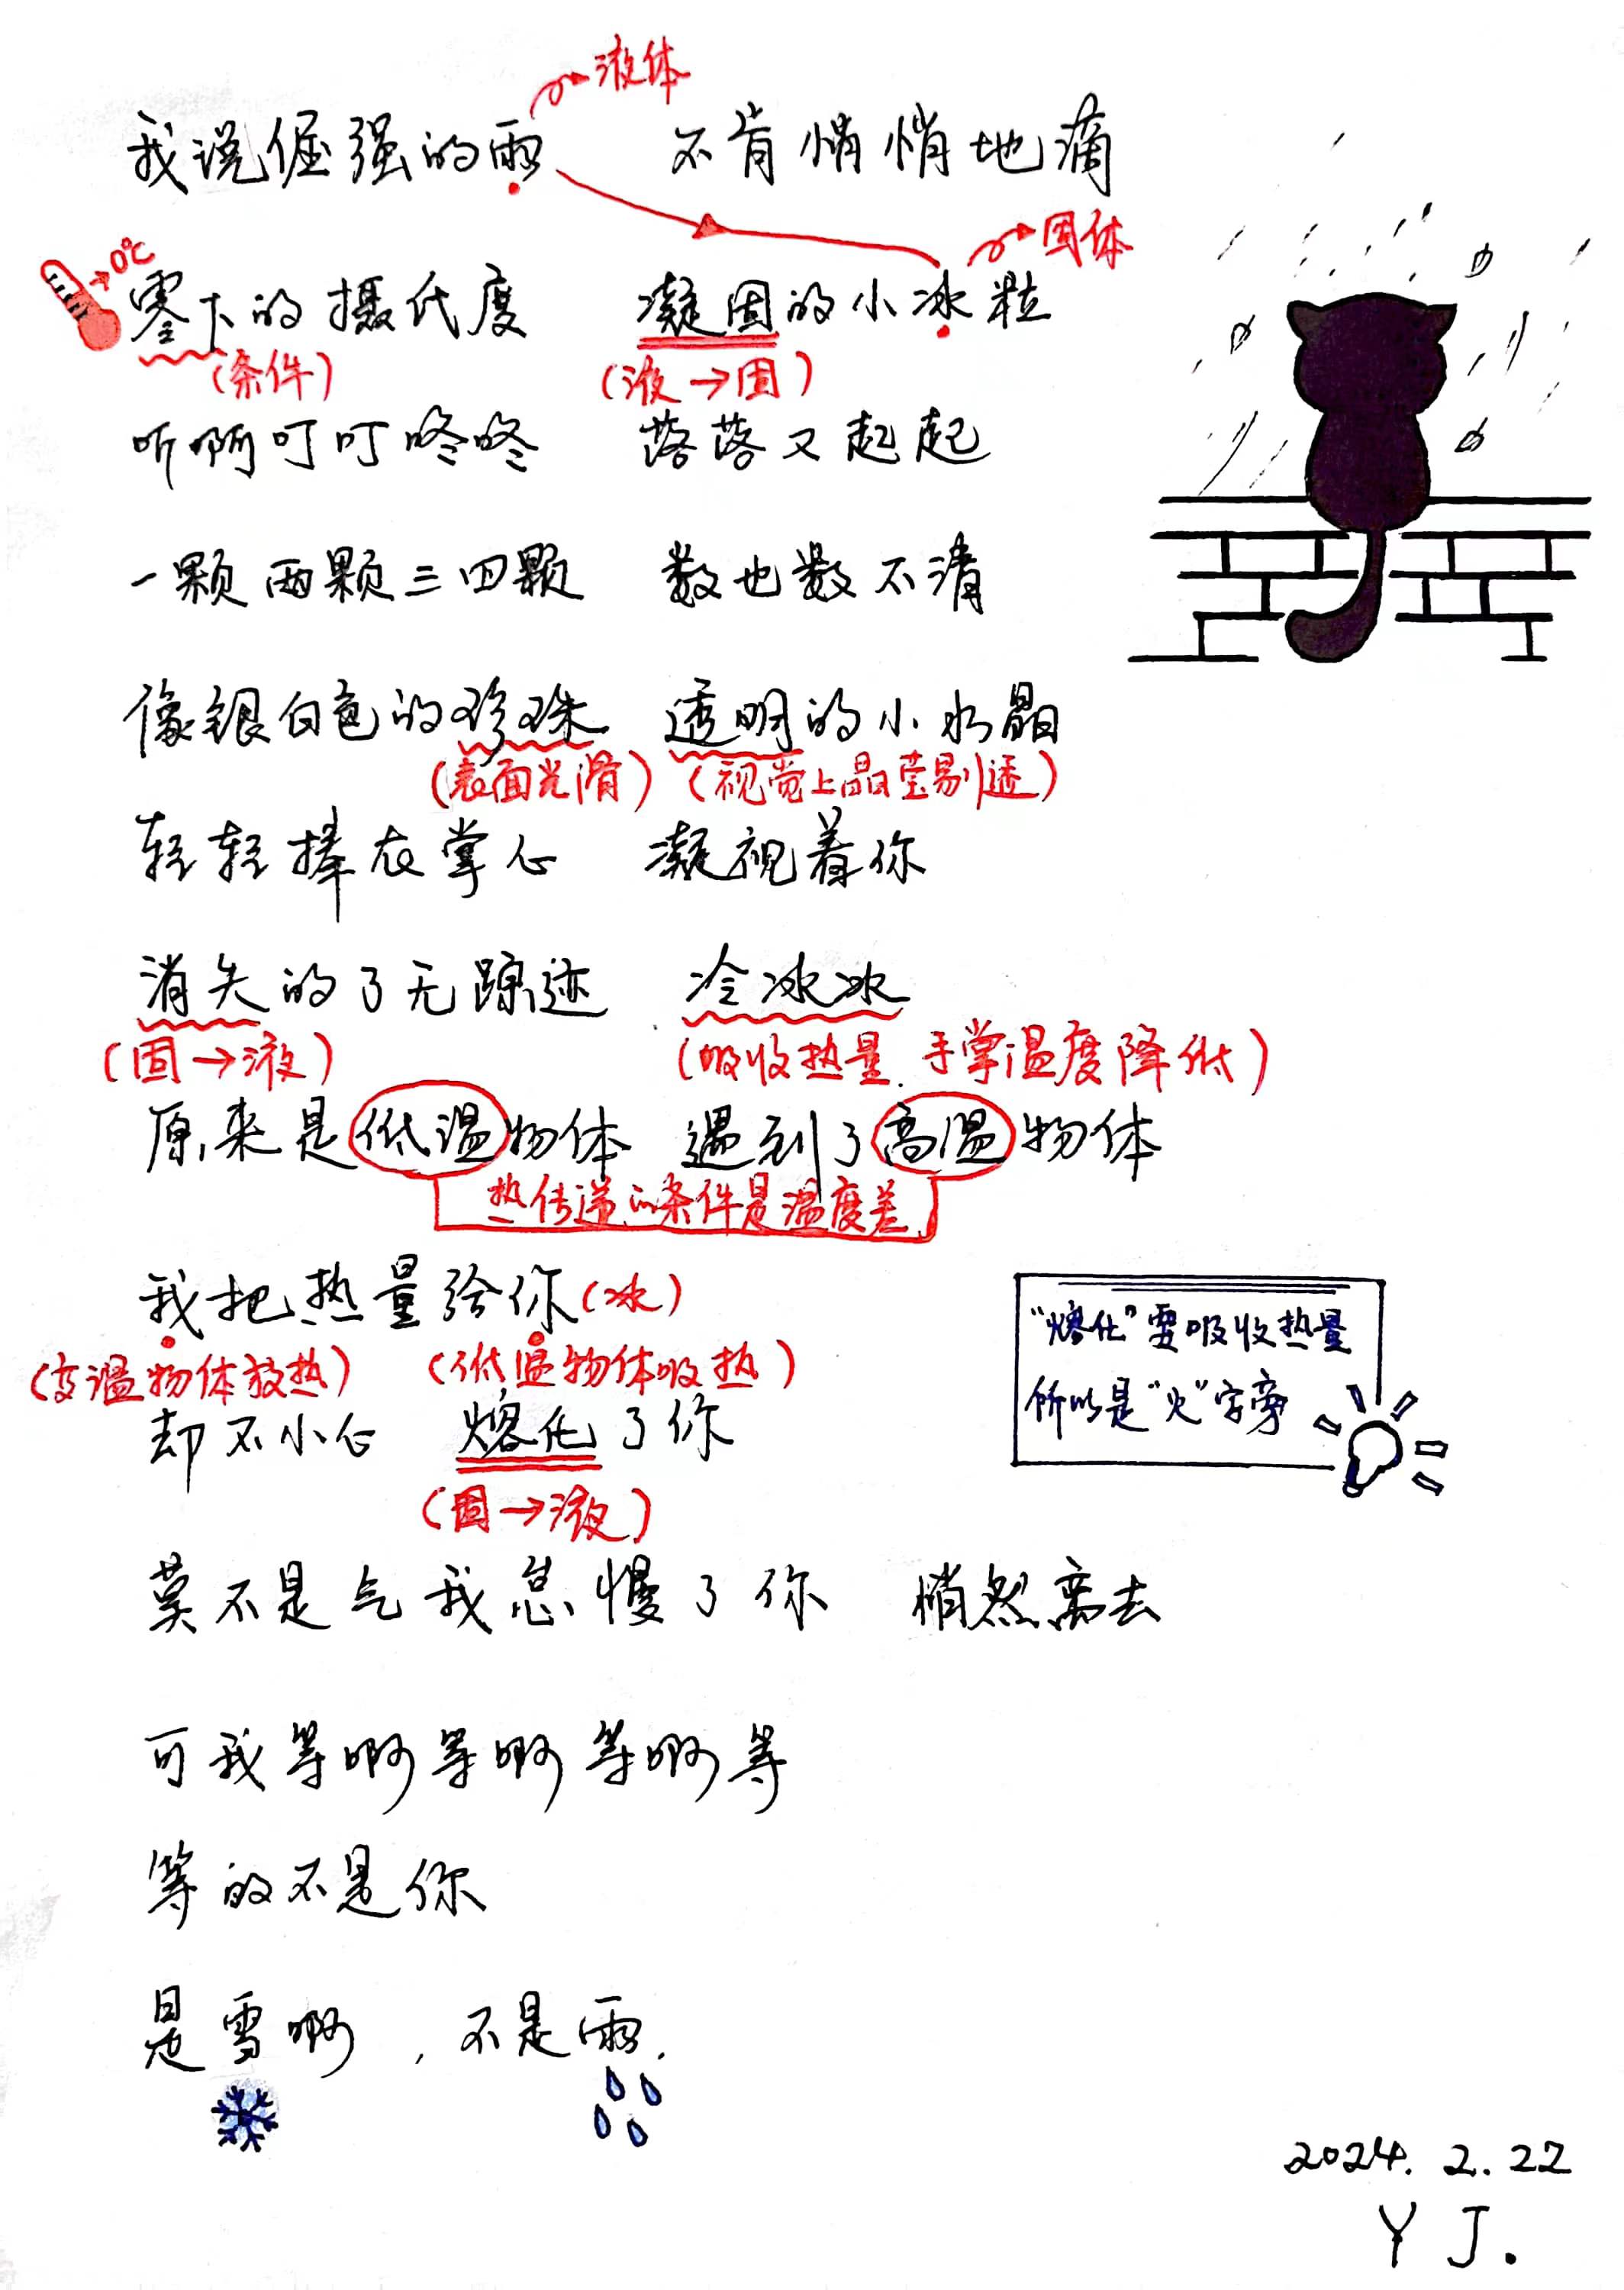 液体
我说倔强的雨 不肯悄悄地滴
0℃ 固体
零下的摄氏度 凝固的小冰粒
(条件) (液→固)
听啊叮叮咚咚 落落又起起
一颗两颗三四颗 数也数不清
像银白色的珍珠 透明的小水晶
(表面光滑) (视觉上晶莹剔透)
轻轻捧在掌心 凝视着你
消失的了无踪迹 冷冰冰
(固→液) (吸收热量.手掌温度降低)
原来是低温物体 遇到了高温物体
热传递的条件是温度差
我把热量给你(冰)
(高温物体放热) (低温物体吸热)
却不小心 熔化了你
(固→液)
"熔化"要吸收热量
所以是"火"字旁
莫不是气我怠慢了你 悄然离去
可我等啊等啊等啊等
等的不是你
是雪啊,不是雨.
2024.2.22
YJ.